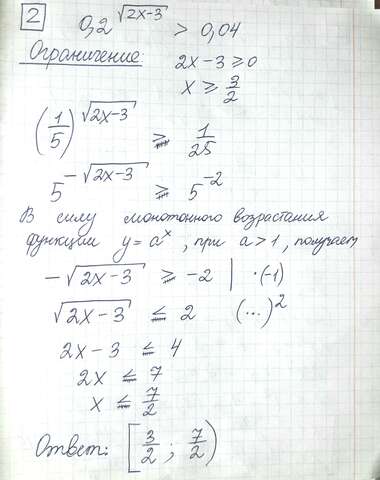 2 0,2^√(2x-3) > 0,04
Ограничение: 2x - 3 ≥ 0
x ≥ 3/2
(1/5)^√(2x-3) > 1/25
5^-√(2x-3) > 5^-2
В силу монотонного возрастания
функции y = a^x, при a > 1, получаем
-√(2x-3) > -2 | ·(-1)
√(2x-3) < 2 (...)^2
2x - 3 < 4
2x < 7
x < 7/2
Ответ: [3/2 ; 7/2)